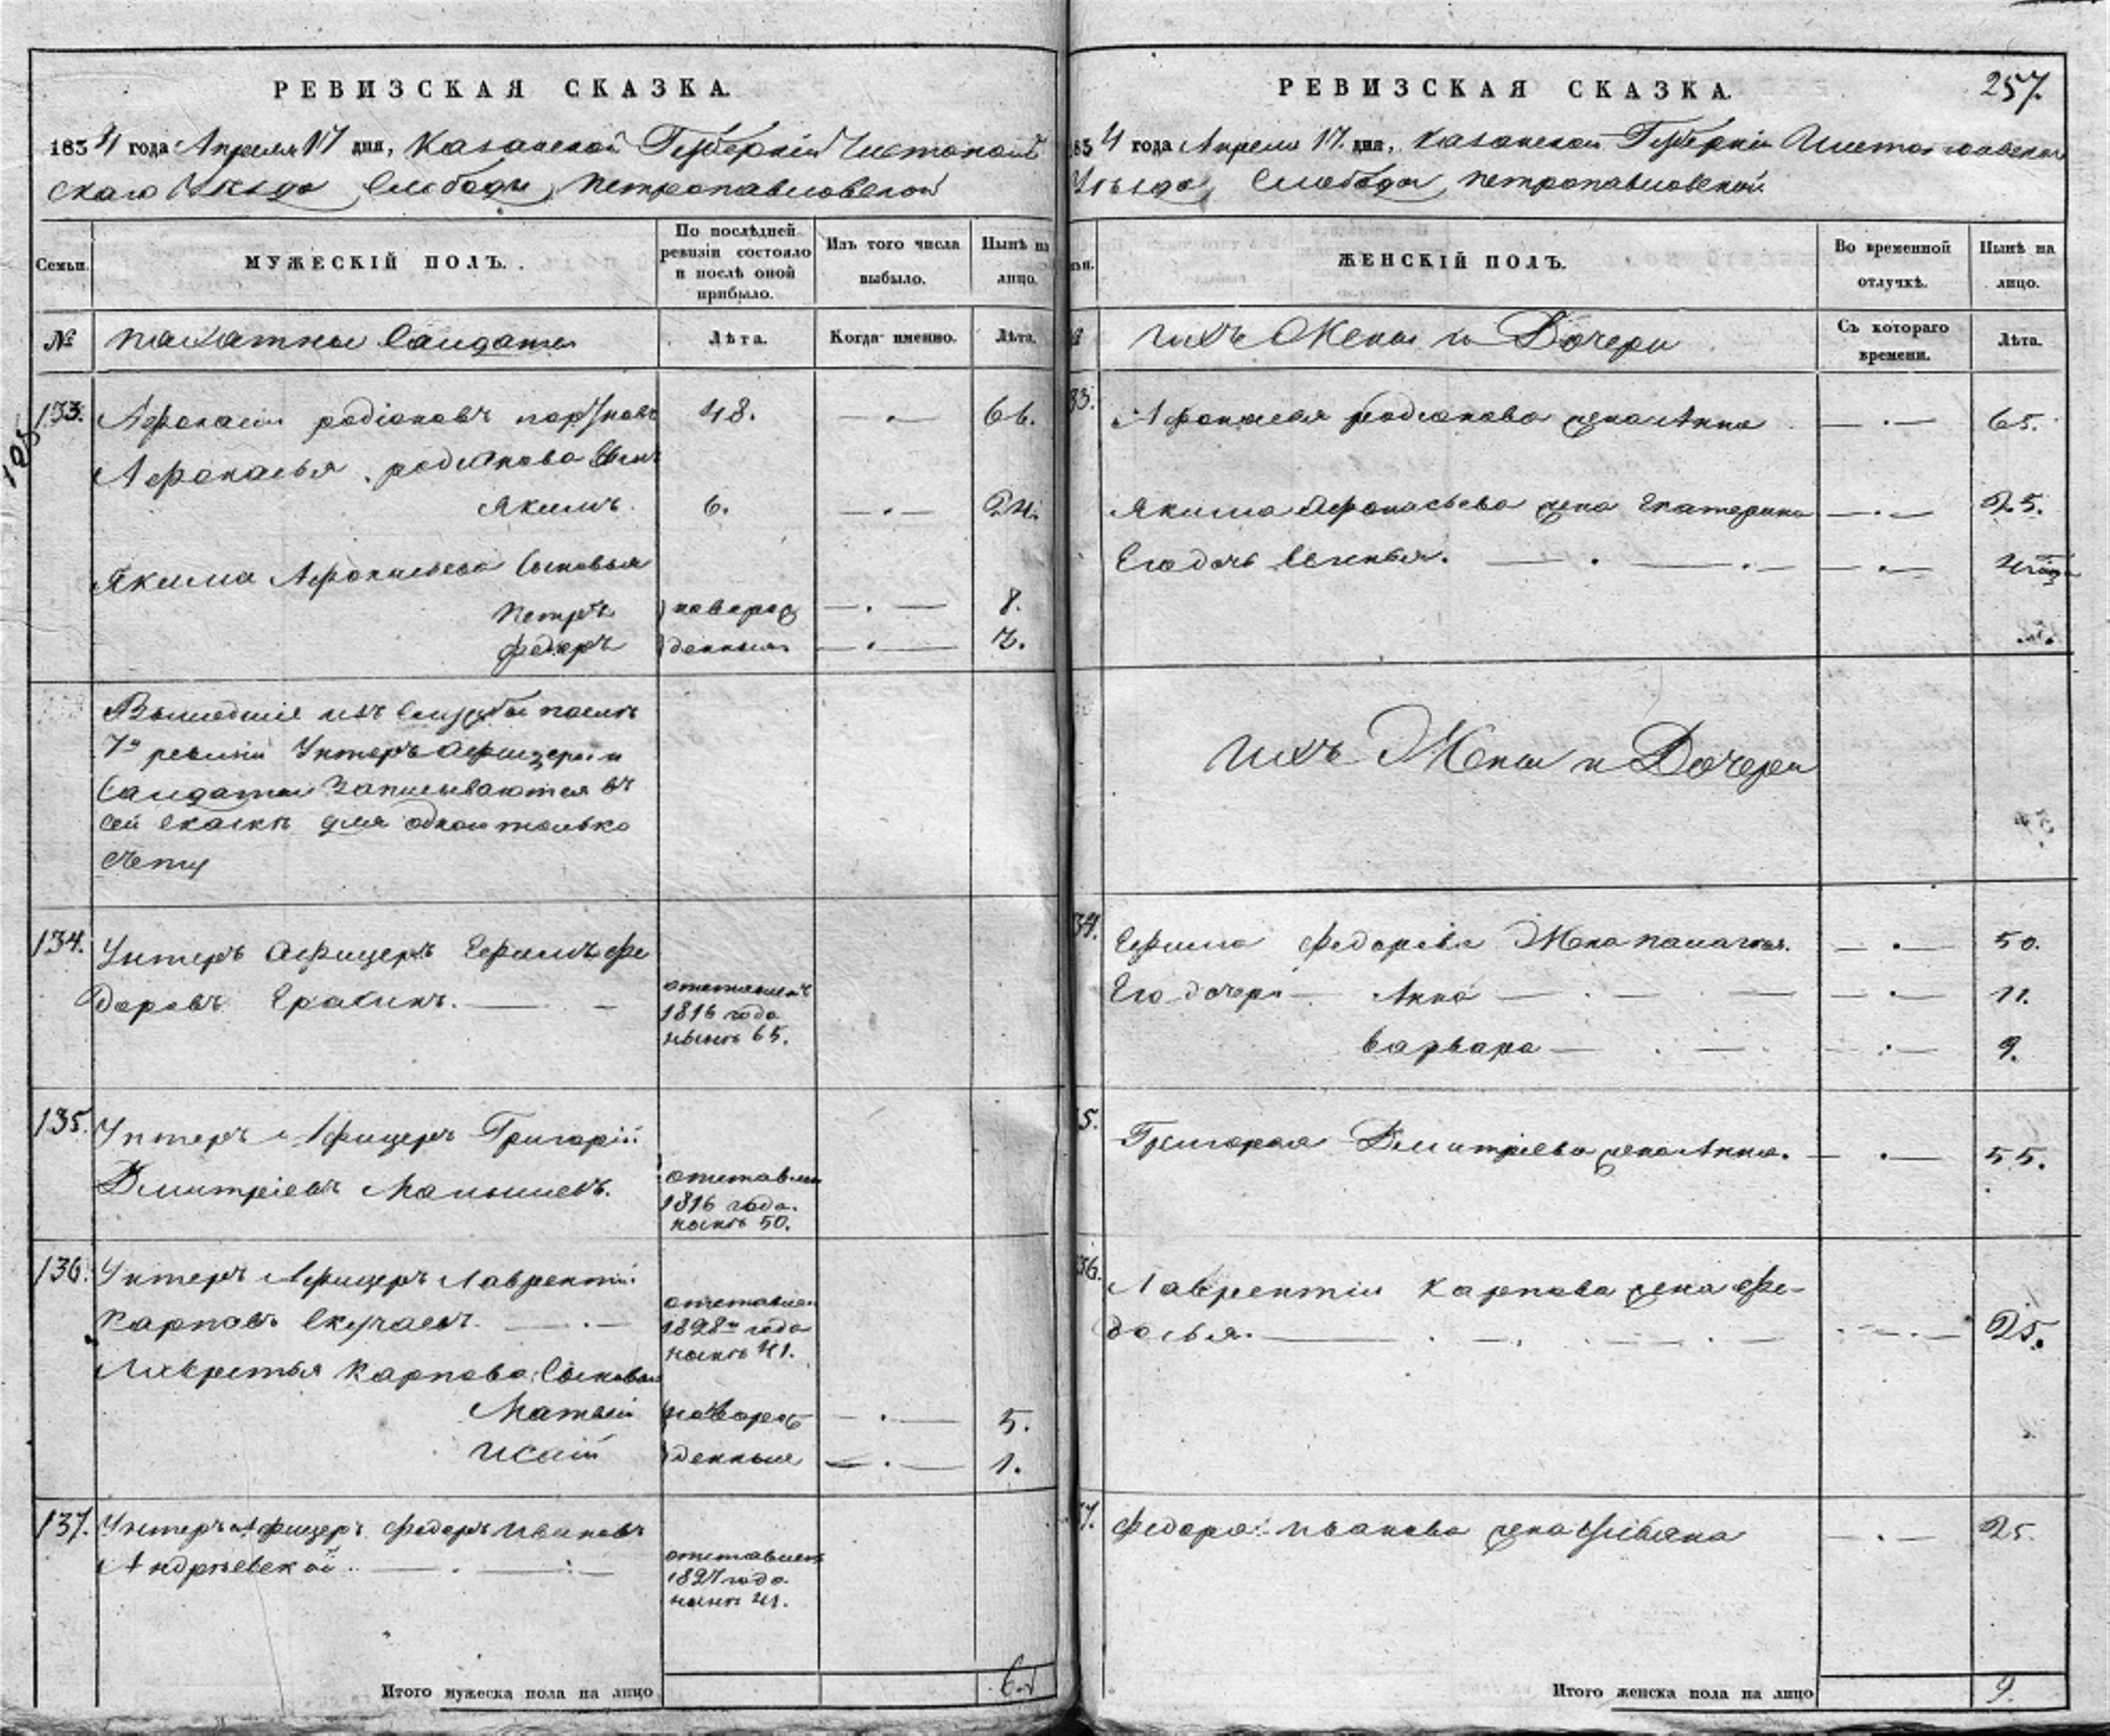 РЕВИЗСКАЯ СКАЗКА.
1834 года Апреля 17 дня, Казанской Губернiи Чистополь
скаго Уѣзда Слободы Петропавловской
Семьи.
МУЖЕСКIЙ ПОЛЪ.
По послѣдней
ревизiи состояло
и послѣ оной
прибыло.
Изъ того числа
выбыло.
Нынѣ на
лицо.
№
пахатные Салдаты
Лѣта.
Когда именно.
Лѣта.
105
133. Афонасiй родiоновъ 48. — . — 66.
Афонасья родiонова Сынъ
Якимъ. 6. — . — 24.
Якима Афонасьева Сыновья
Петръ новорож — . — 8.
федоръ денныя — . — 3.
Вышедшiе изъ Службы послѣ
7й ревизiи Унтеръ Афицеры и
Салдаты Записываются въ
сей сказкѣ для одного только
счету
134. Унтеръ Афицеръ Ефимъ Фе
доровъ — —
отставленъ
1816 года
нынѣ 65.
135. Унтеръ Афицеръ Григорiй
Дмитрiевъ Малышевъ.
отставлен
1816 года.
нынѣ 50.
136. Унтеръ Афицеръ Лаврентiй
Карповъ Скучаевъ. — . —
отставлен
1828го года
нынѣ 41.
Лаврентья Карпова Сыновья
Матвей новорож — . — 5.
Исай денные — . — 1.
137. Унтеръ Афицеръ федоръ Ивановъ
Андреевской. — . — : —
отставленъ
1827 года
нынѣ 41.
Итого мужеска пола на лицо 6.
РЕВИЗСКАЯ СКАЗКА.
257.
834 года Апреля 17. дня, Казанской Губернiи Чистопольской
Уѣзда, Слободы Петропавловской
ЖЕНСКIЙ ПОЛЪ.
Во временной
отлучкѣ.
Нынѣ на
лицо.
ихъ Жены и Дочери
Съ котораго
времени.
Лѣта.
33. Афонасья родионова жена Анна — . — 65.
Якима Афонасьева жена Екатерина — . — 25.
Его дочь — . — . — — . —
ихъ Жены и Дочери
34. Ефима Федорова Жена — . — 50.
Его дочери — Анна — . — . — — . — 11.
Варвара — . — . — . — 9.
5. Григорья Дмитрiева жена Анна. — . — 55.
36. Лаврентiя Карпова жена Фе-
досья. — . — . — . — . — . — 25.
7. Федора Иванова жена Ульяна — . — 25.
Итого женска пола на лицо 9.